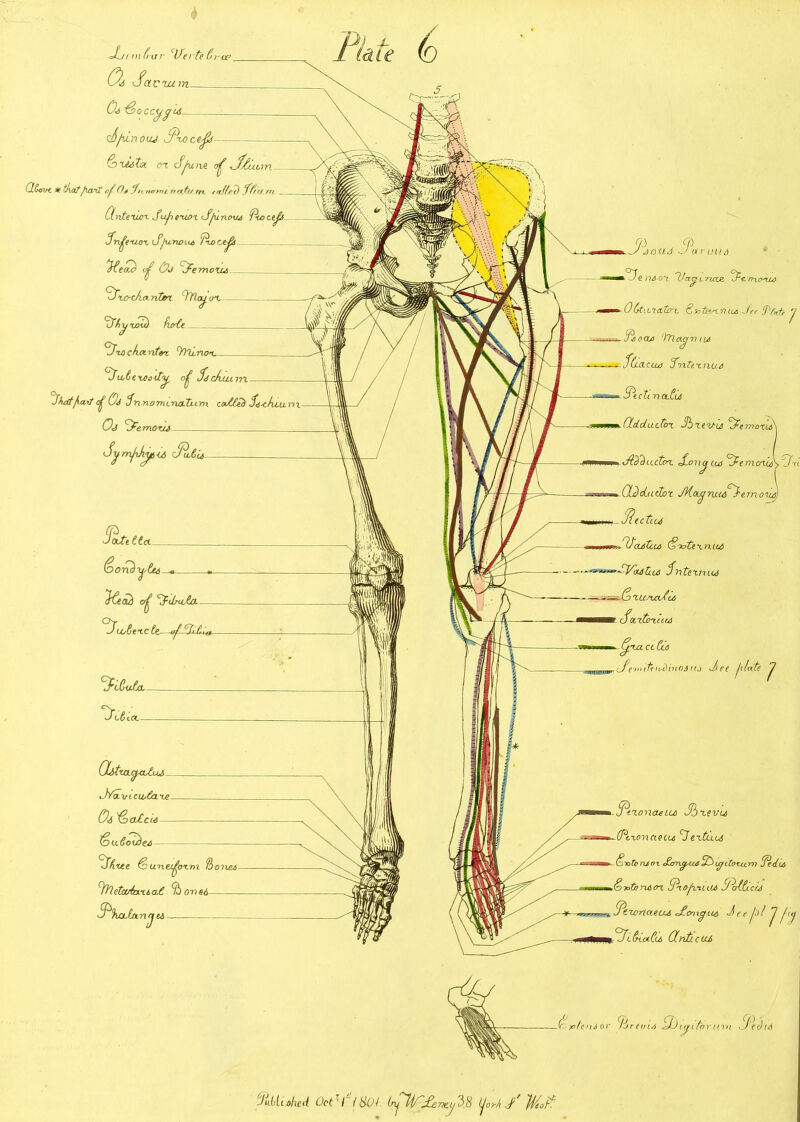 Plate 6
Lumbar Vertebræ
Os Sacrum
Os Coccygis
Spinous Process
Crista or Spine of Ilium
Above * that part of Os Innominatum called Ilium
Anterior Superior Spinous Process
Inferior Spinous Process
Head of Os Femoris
Trochanter Major
Thyroid hole
Trochanter Minor
Tuberosity of Ischium
That part of Os Innominatum called Ischium
Os Femoris
Symphysis Pubis
Patella
Condyles
Head of Fibula
Tubercle of Tibia
Fibula
Tibia
Astragalus
Naviculare
Os Calcis
Cuboides
Three Cuneiform Bones
Metatarsal Bones
Phalanges
5
Psoas Parvus
Tensor Vaginae Femoris
Obturator Externus See Plate 7
Psoas Magnus
Iliacus Internus
Pectinalis
Adductor Brevis Femoris
Adductor Longus Femoris
Adductor Magnus Femoris
Rectus
Vastus Externus
Vastus Internus
Cruralis
Sartorius
Gracilis
Semitendinosus See plate 7
*
Peronaeus Brevis
Peronaeus Tertius
Extensor Longus Digitorum Pedis
Extensor Proprius Pollicis
* Peronaeus Longus See pl 7 fig
Tibialis Anticus
Extensor Brevis Digitorum Pedis
Published Octr 1st 1801. by W Leney 38 York St Westr